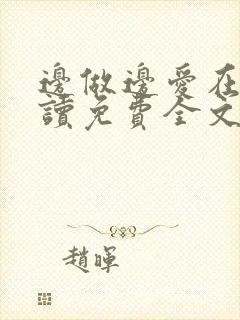 邊做邊愛在
讀免費全文
趙暉